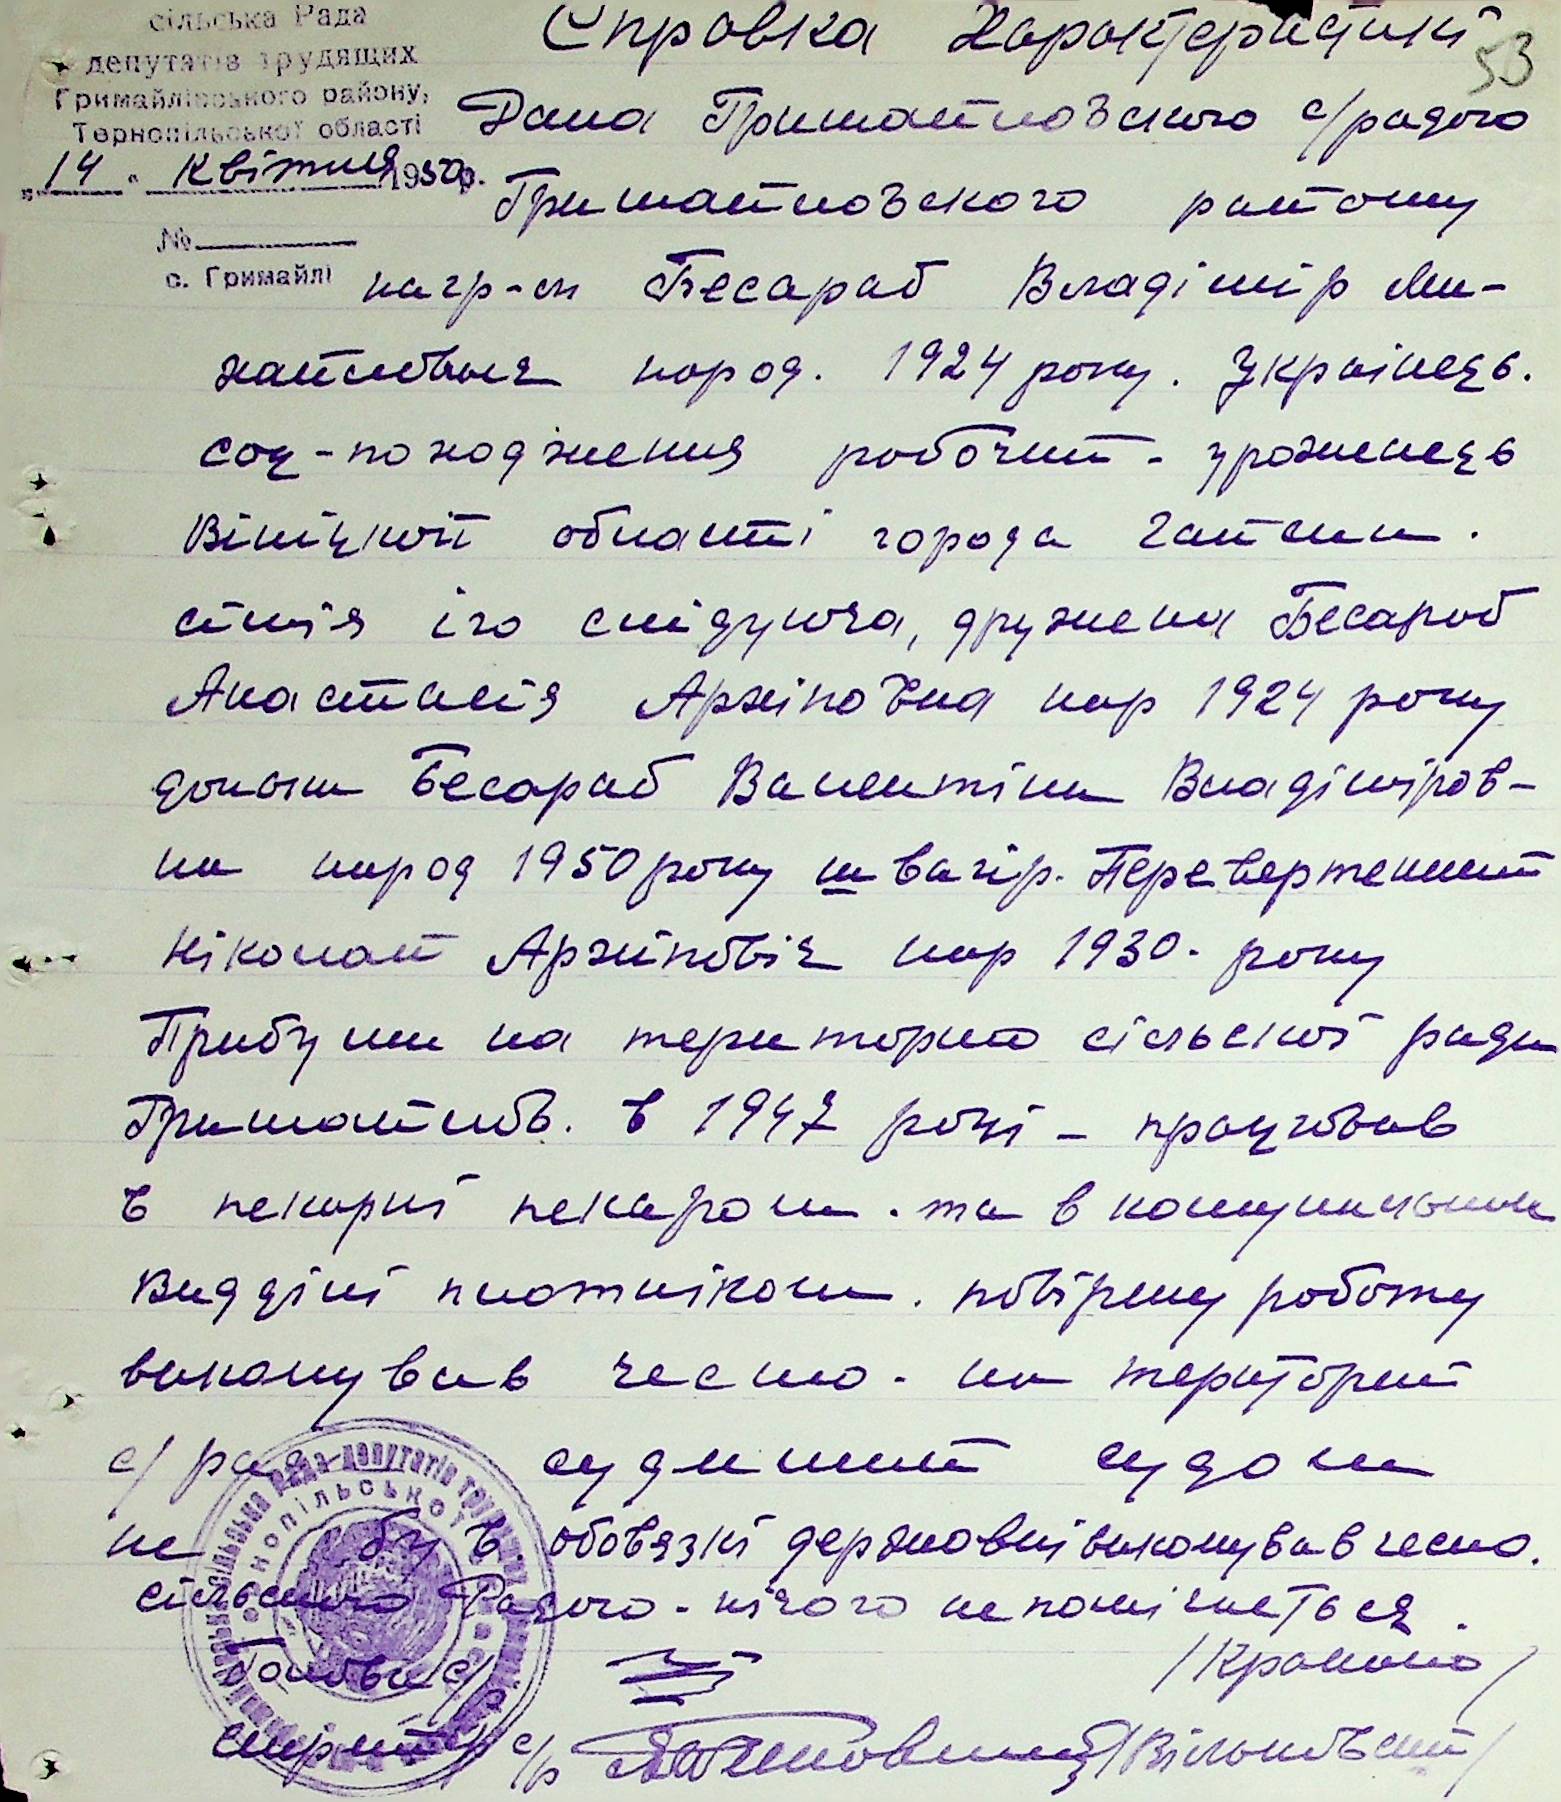 сільська Рада
депутатів трудящих
Гримайлівського району,
Тернопільської області
"14" квітня 1950р.
№
с. Гримайлі
53
Справка Характеристики
Дана Гримайловского с/радою
Гримайловского району
на гр-ен Бесараб Владімір Ми-
хайлович народ. 1924 року. Українець.
соц-походження робочий - уроженець
Вініцкої области города Гайсин.
сімія іго слідуюча, дружена Бесараб
Анастасія Архіповна нар 1924 року
дочька Бесараб Валентіна Владіміров-
на народ 1950 року швагір. Перевертенний
Ніколай Архіповіч нар 1930. року
Прибули на територию сільскої ради
Гримайлов. в 1947 році - працював
в пекарні пекаром. та в комунальном
видділі плотніком. повірену роботу
виконував чесно. на території
с/ради судимий судом
не був обовязкі державні виконував чесно.
сільською Радою - нічого не помічається.
Голова с/р /Кранона/
с/р /Вільковский/